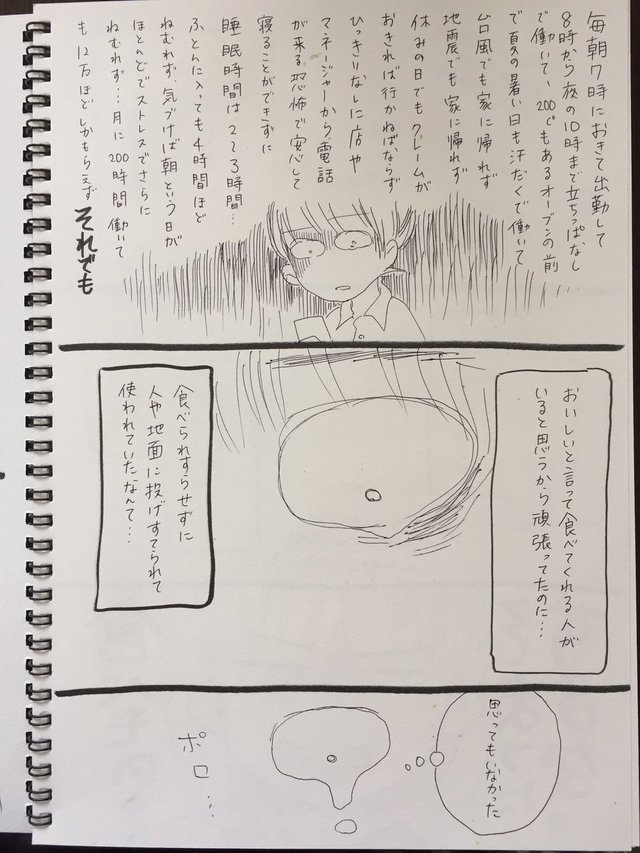 毎朝7時におきて出勤して
8時から夜の10時まで立ちっぱなし
で働いて、200℃もあるオーブンの前
で夏の暑い日も汗だくで働いて
台風でも家に帰れず
地震でも家に帰れず
休みの日でもクレームが
おきれば行かねばならず
ひっきりなしに店や
マネージャーから電話
が来る恐怖で安心して
寝ることができずに
睡眠時間は2〜3時間…
ふとんに入っても4時間ほど
ねむれず、気づけば朝という日が
ほとんどでストレスでさらに
ねむれず…月に200時間働いて
も12万ほどしかもらえず
それでも
おいしいと言って食べてくれる人が
いると思うから頑張ってたのに…
食べられすらせずに
人や地面に投げすてられて
使われていたなんて…
思ってもいなかった
ポロ…